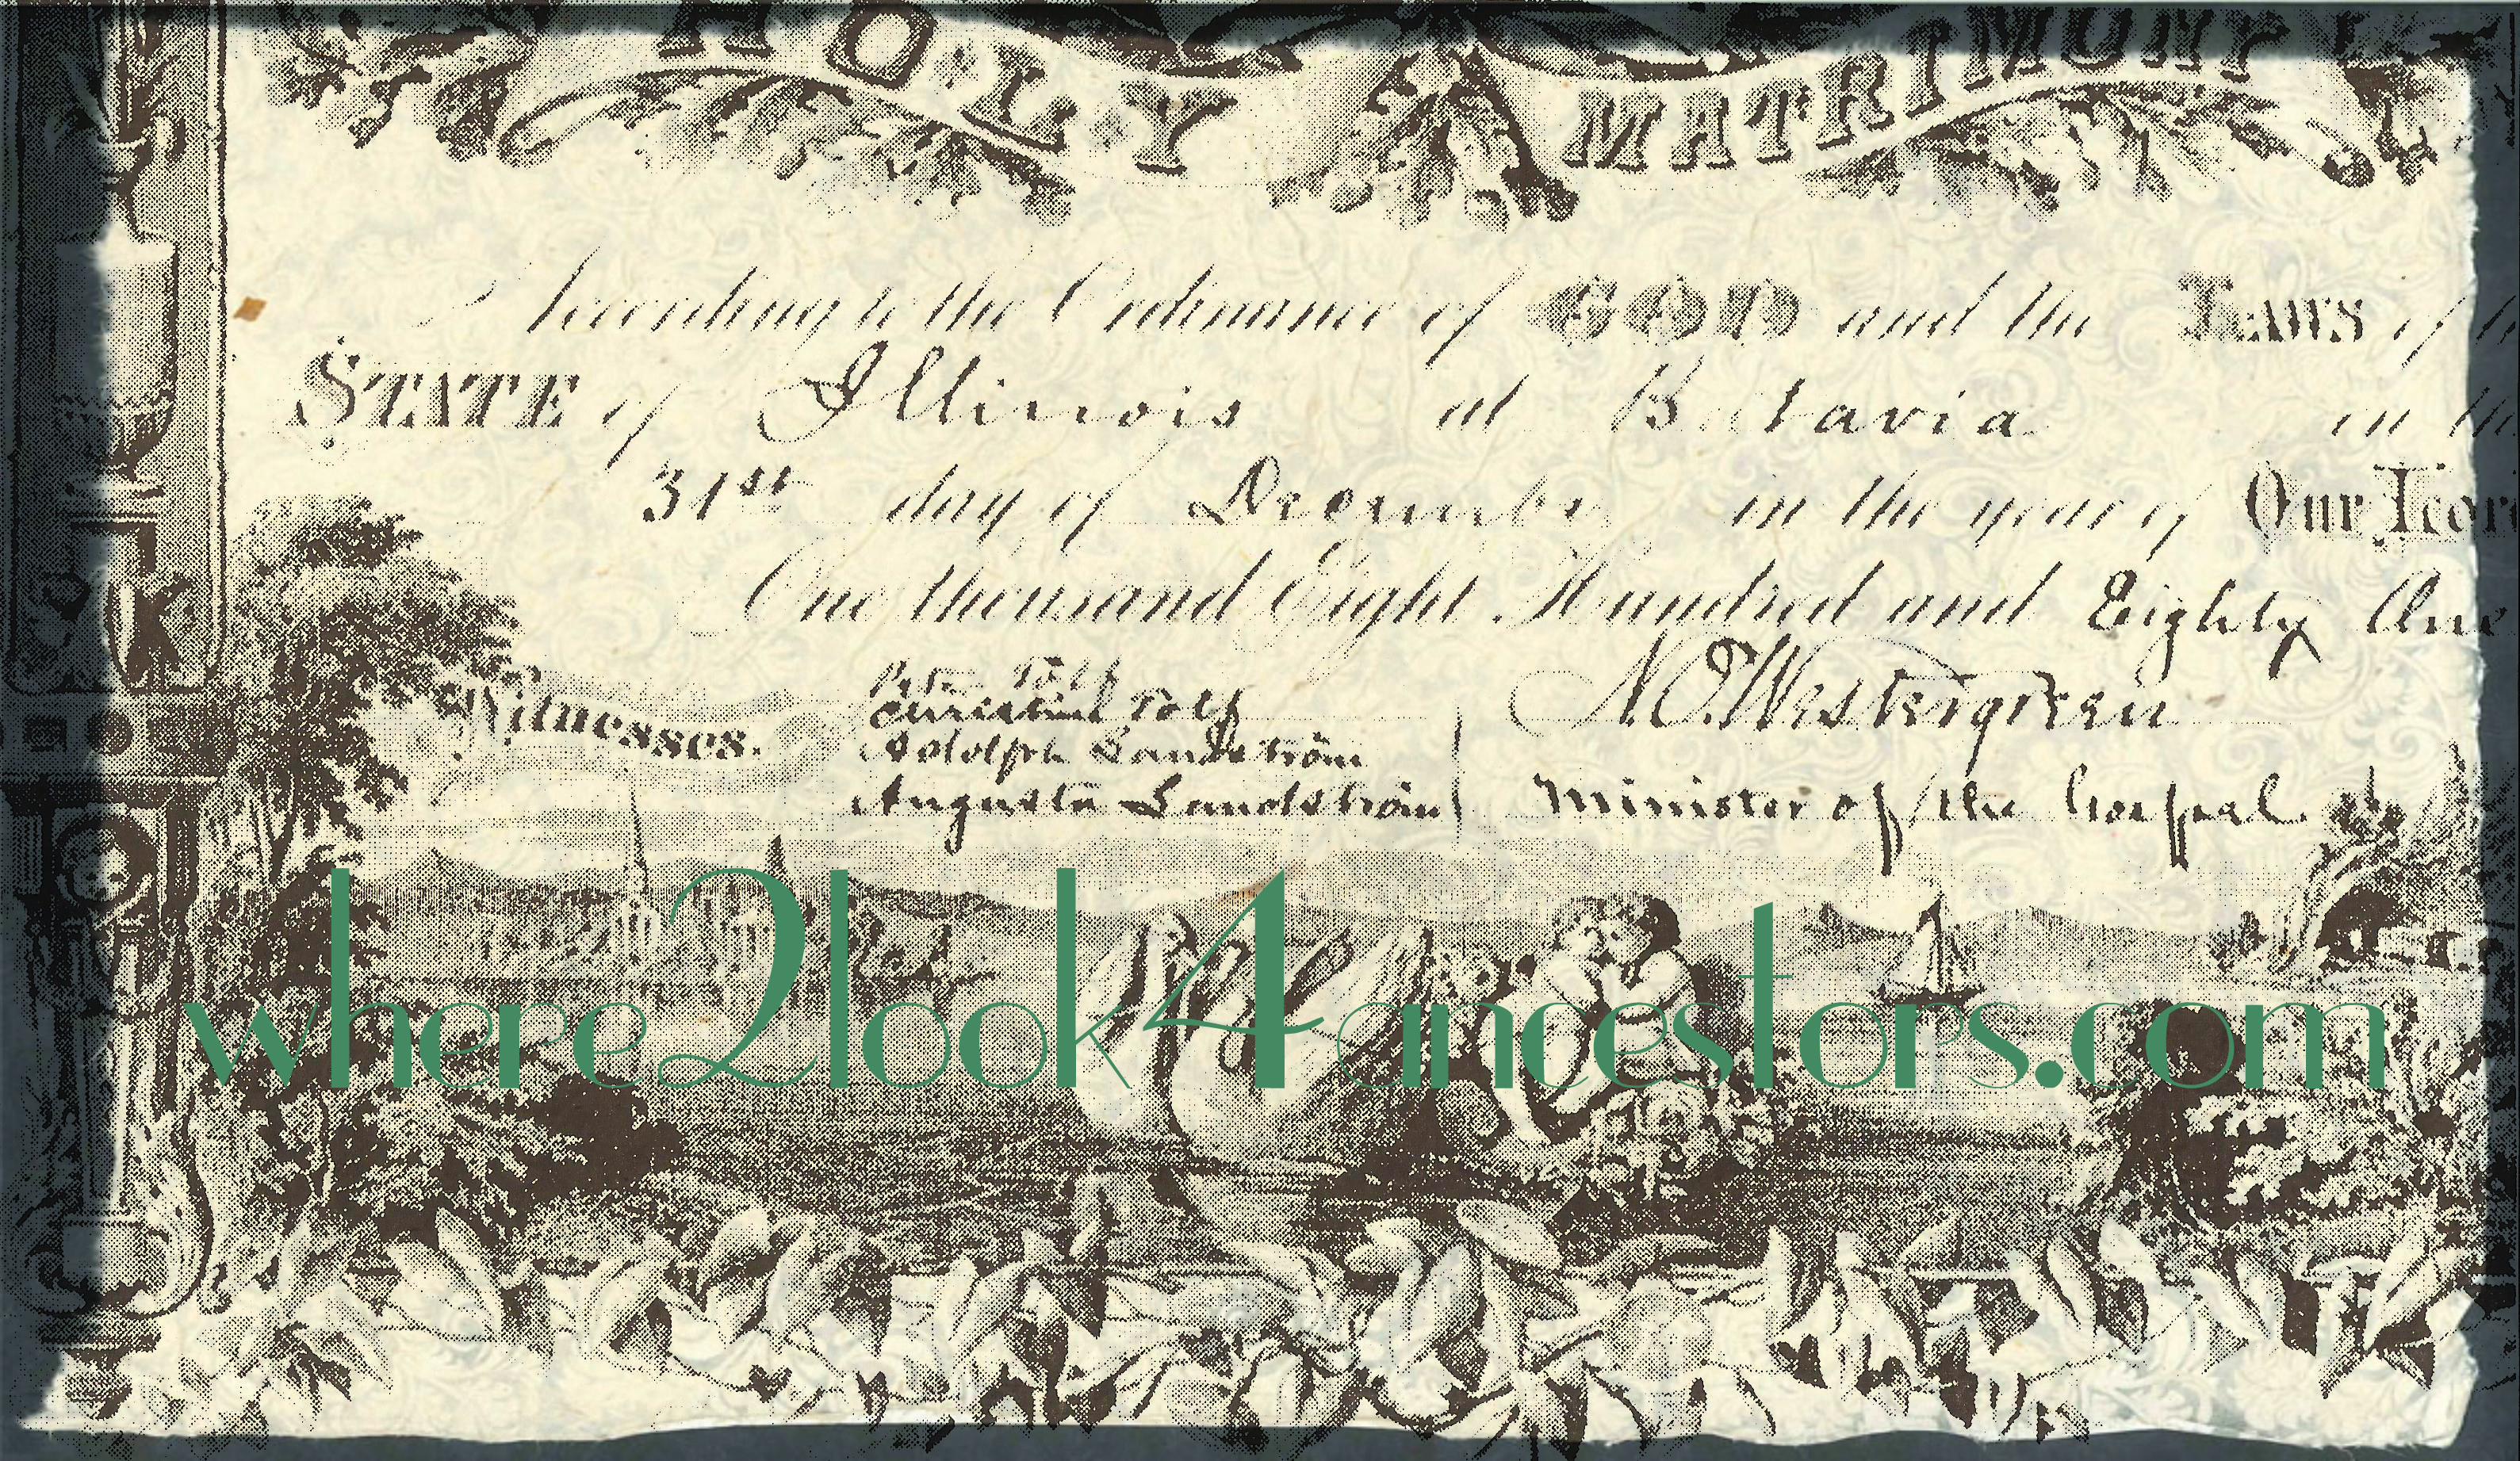 HOLY MATRIMONY
According to the Ordinance of GOD and the Laws of
STATE of Illinois at Batavia in the
31st day of December in the year of Our Lor
One thousand Eight Hundred and Eighty One
Witnesses.
Peter Tolf
Christine Tolf
Adolph Sandström
Augusta Sandström
N.O. Westergreen
Minister of the Gospel.
where2look4ancestors.com